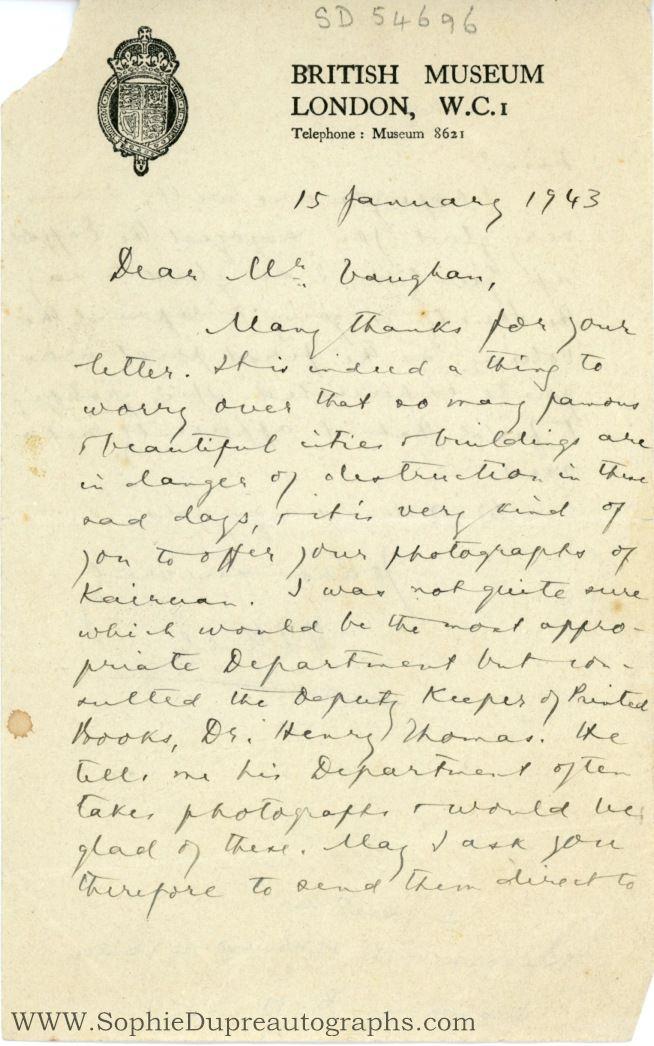 SD 54696
BRITISH MUSEUM
LONDON, W.C.1
Telephone : Museum 8621
15 January 1943
Dear Mr. Vaughan,
Many thanks for your
letter. It is indeed a thing to
worry over that so many famous
& beautiful cities & buildings are
in danger of destruction in these
sad days, & it is very kind of
you to offer your photographs of
Kairuan. I was not quite sure
which would be the most appro-
priate Department but con-
sulted the Deputy Keeper of Printed
Books, Dr. Henry Thomas. He
tells me his Department often
takes photographs & would be
glad of these. May I ask you
therefore to send them direct to
WWW.SophieDupreautographs.com